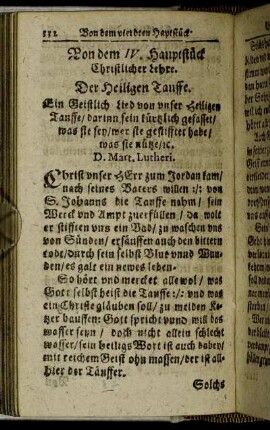 532 Von dem vierdten Hauptstück.
Von dem IV. Hauptstück
Christlicher Lehre.
Der Heiligen Tauffe.
Ein Geistlich Lied von vnser Heiligen
Tauffe/ darinn fein kürtzlich gefasset/
was sie sey/ wer sie gestifftet habe/
was sie nütze/ ꝛc.
D. Mart. Lutheri.
Christ vnser HErr zum Jordan kam/
nach seines Vaters willen :/: von
S. Johanns die Tauffe nahm/ sein
Werck vnd Ampt zuerfüllen/ da wolt
er stifften vns ein Bad/ zu waschen vns
von Sünden/ ersäuffen auch den bittern
tode/ durch sein selbst Blut vnnd Wun-
den/ es galt ein newes leben.
So hört vnd mercket alle wol/ was
Gott selbst heist die Tauffe :/: vnd was
ein Christe gläuben soll/ zu meiden Ke-
tzer hauffen: Gott spricht vnnd will das
wasser seyn/ doch nicht allein schlecht
wasser/ sein heiligs Wort ist auch dabey/
mit reichem Geist ohn massen/ der ist all-
hier der Täuffer.
Solchs